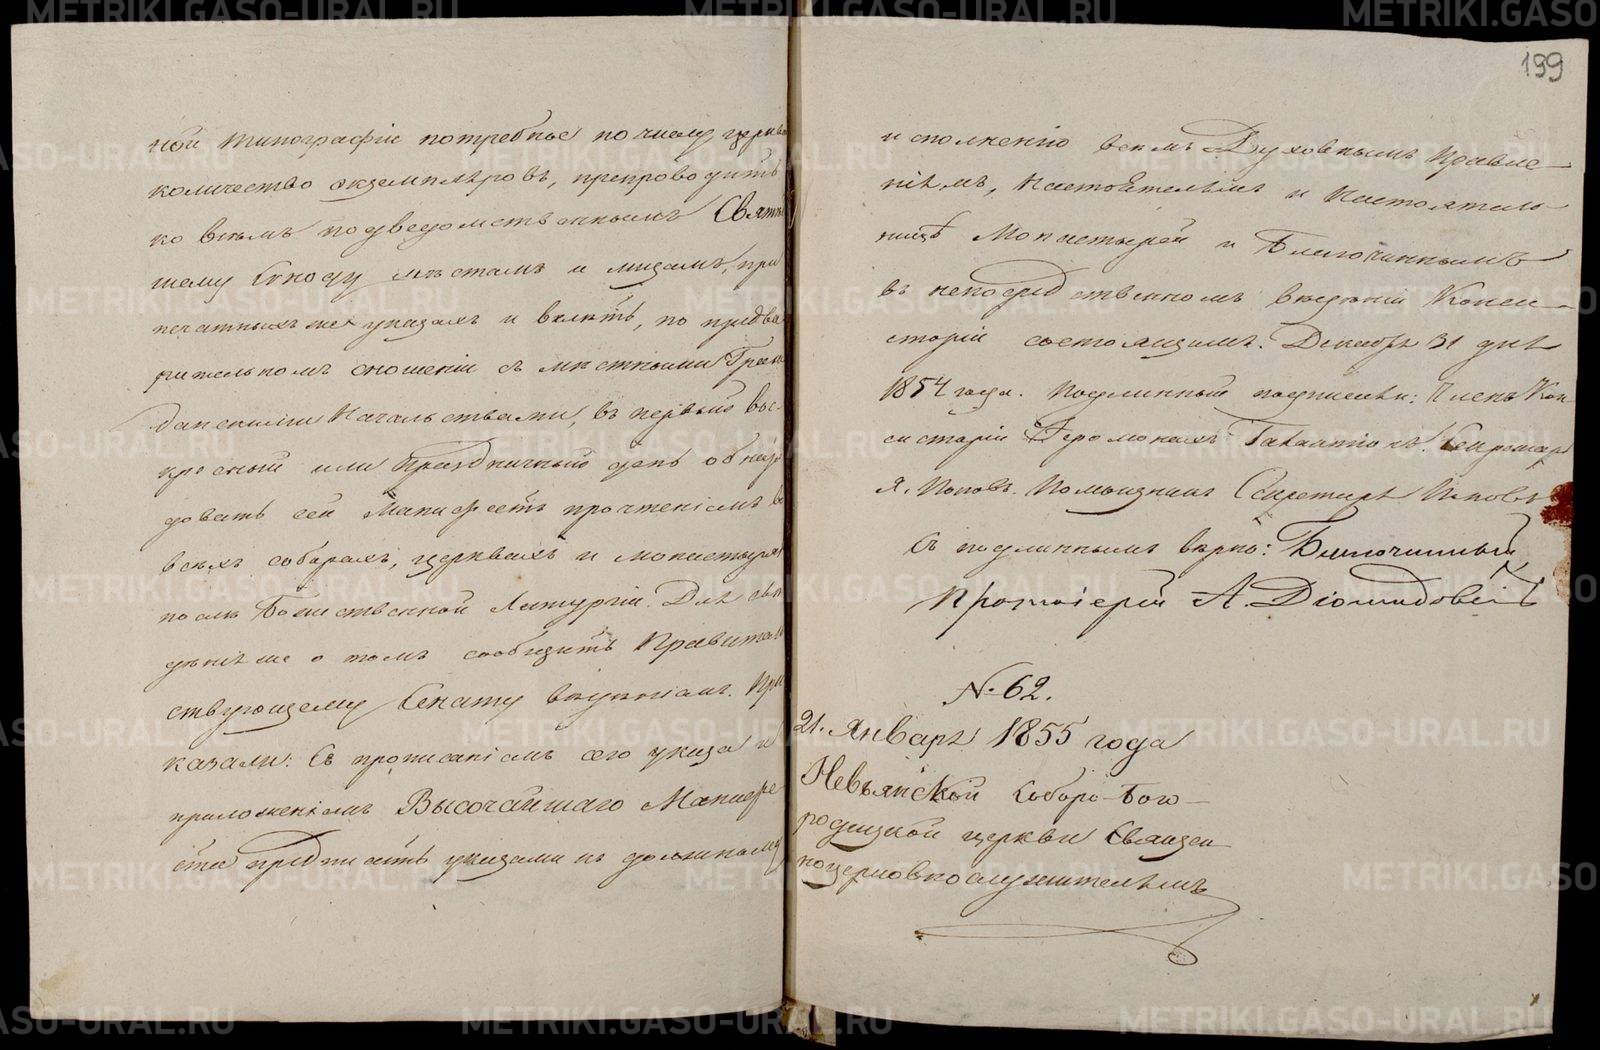 ной Типографіи потребное по числу церквей
количество экземпляровъ, препроводить
ко всѣмъ подведомственнымъ Святѣй
шему Сѵноду мѣстамъ и лицамъ, при
печатныхъ же указахъ и велѣть, по предва
рительномъ сношеніи съ мѣстными Граж
данскими Начальствами, въ первый вос-
кресный или праздничный день обнаро
довать сей Манифестъ прочтеніемъ во
всѣхъ соборахъ, церквахъ и монастыряхъ
послѣ Божественной Литургіи. Для свѣ
дѣнія же о томъ сообщить Правитель
ствующему Сенату вѣденіемъ. При
казали: Съ прописаніемъ сего указа и
приложеніемъ Высочайшаго Манифе
ста предписать указами къ должному
199
исполненію всѣмъ Духовнымъ Правле-
ніямъ, Настоятелямъ и Настоятель
ницѣ Монастырей и Благочиннымъ
въ непосредственномъ вѣдѣніи Конси-
сторіи состоящимъ. Декабря 31 дня
1854 года. Подлинный подписали: Членъ Кон
систоріи Іеромонахъ Секретарь
Я. Поповъ. Помощникъ Секретаря Поповъ
Съ подлиннымъ вѣрно: Благочинный
Протоіерей А. Діомидовскій
№ 62.
21. Января 1855 года
Невьянской Соборо-Бого-
родицкой церкви Священ
ноцерковнослужителямъ
METRIKI.GASO-URAL.RU